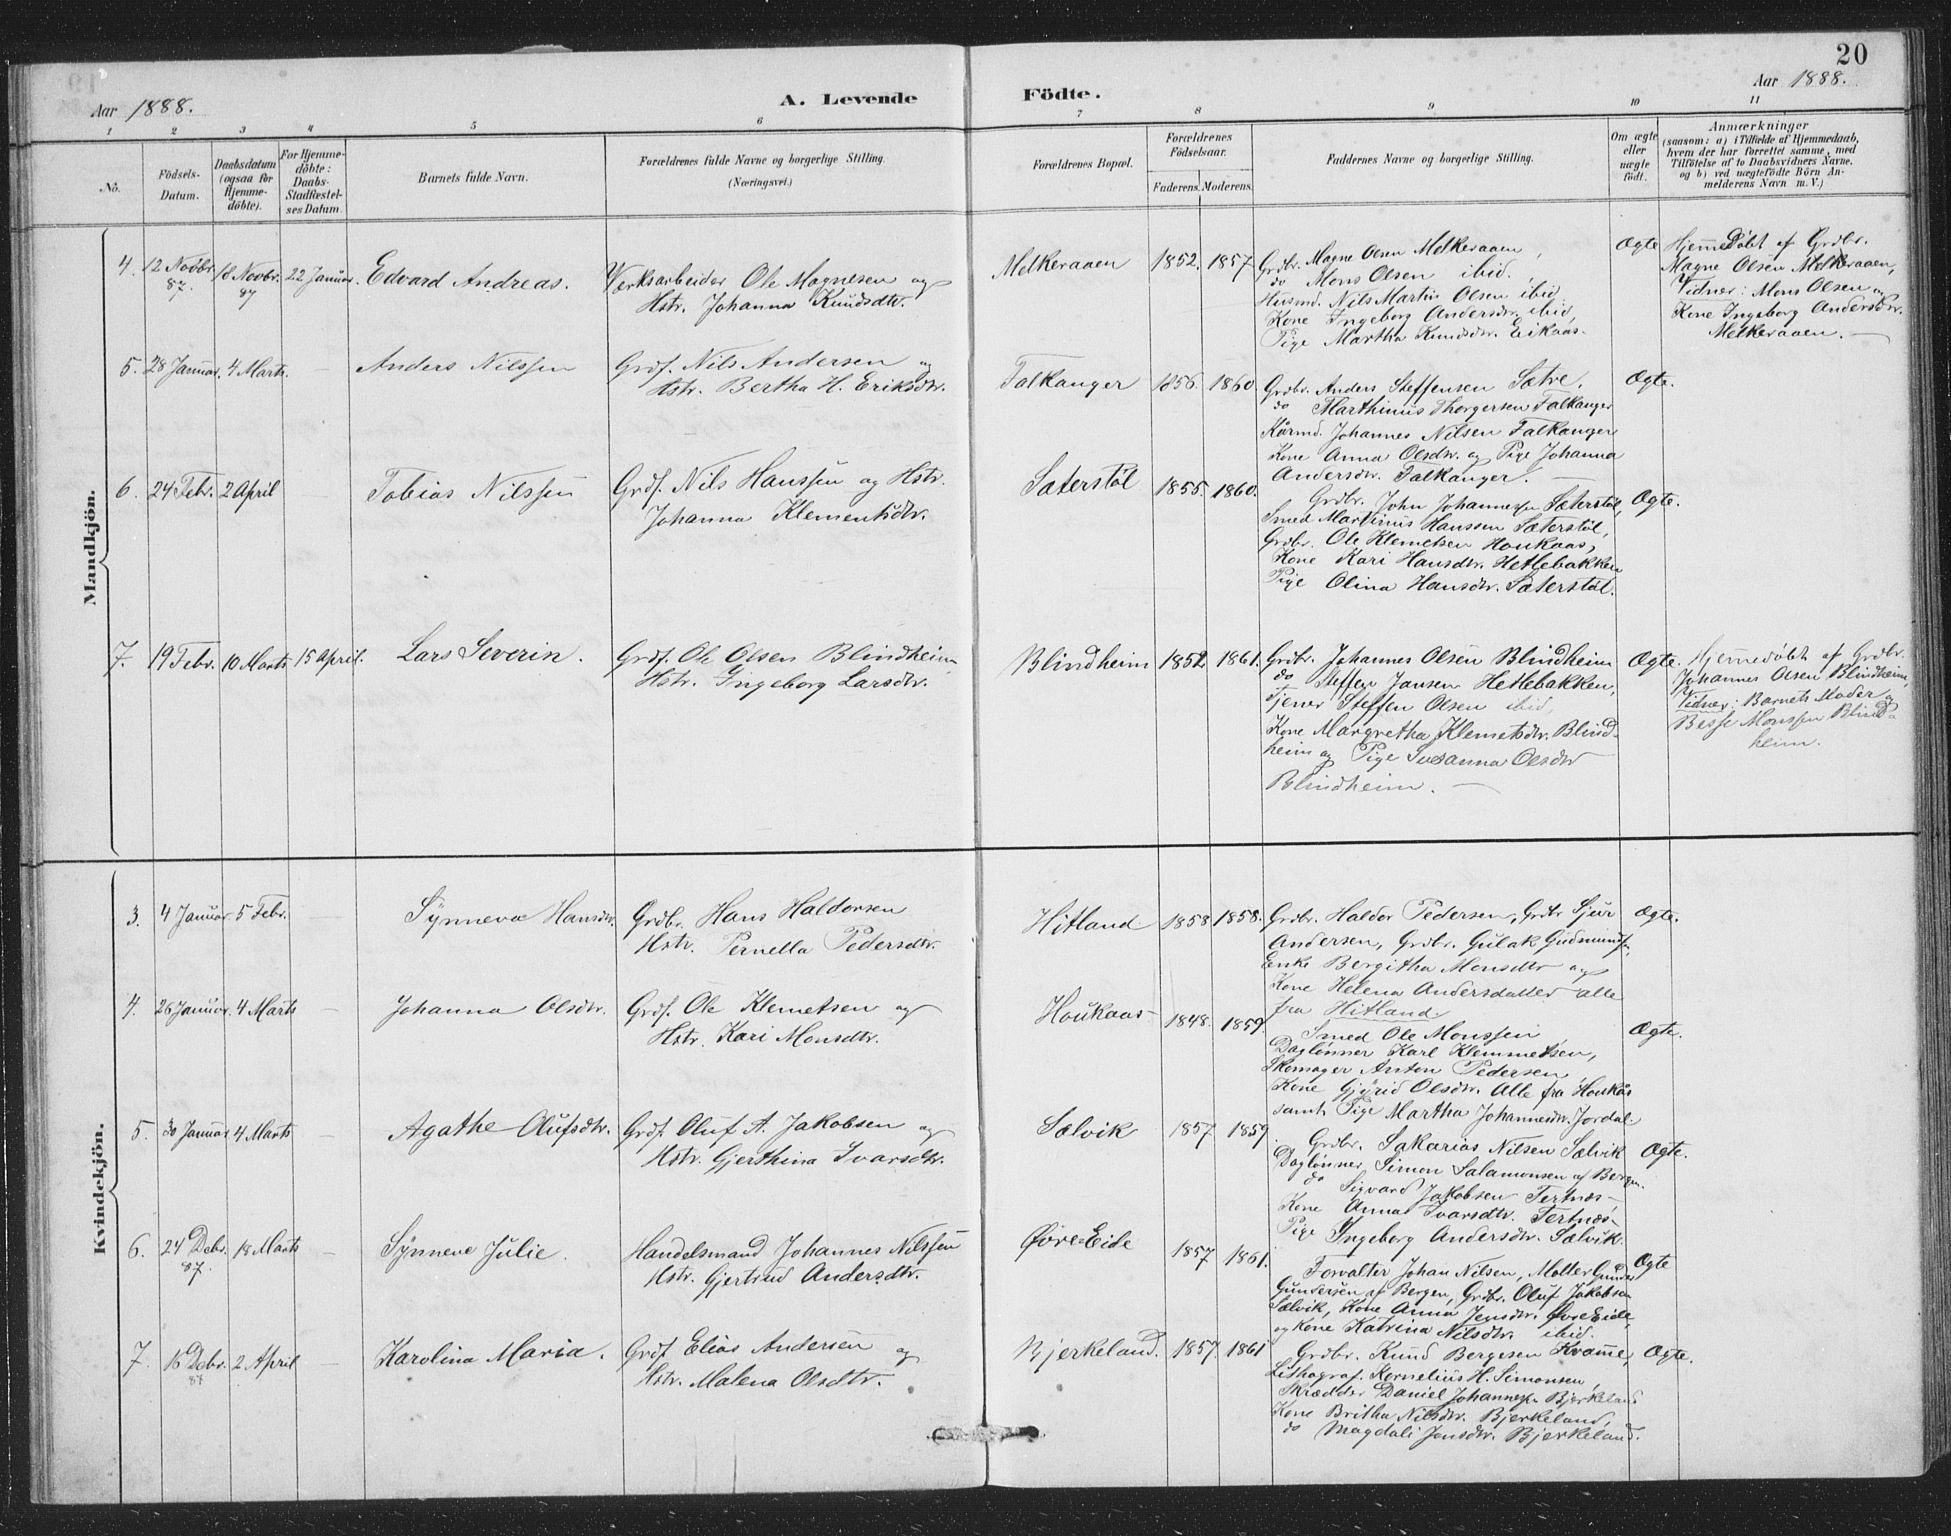 20
Aar 1888.
A. Levende Födte.
Aar 1888.
1 2 3 4 5 6 7 8 9 10 11
No.
Födsels-Datum.
Daabsdatum (ogsaa for Hjemme-döbte).
For Hjemme-döbte: Daabs-Stadfæstel-ses Datum.
Barnets fulde Navn.
Forældrenes fulde Navne og borgerlige Stilling.
(Næringsvei.)
Forældrenes Bopæl.
Forældrenes Födselsaar.
Faderens. Moderens.
Faddernes Navne og borgerlige Stilling.
Om ægte eller uægte födt.
Anmærkninger
(saasom: a) i Tilfælde af Hjemmedaab,
hvem der har forrettet samme, med
Tilföielse af to Daabsvidners Navne.
og b) ved uægtefödte Börn An-
melderens Navn m. V.)
Mandkjön.
4. 12 Novbr. 87. 18 Novbr. 87 22 Januar. Edvard Andreas.
Værksarbeider Ole Magnesen og
Hstr. Johanna Knudsdtr.
Melkeraaen 1852. 1857.
Grdbr. Magne Olsen Melkeraaen,
do Mons Olsen ibid.,
Husmd. Nils Martin Olsen ibid,
Kone Ingeborg Andersdtr. ibid,
Pige Martha Knudsdtr. Eikaas.
Ægte
Hjemmedöbt af Grdbr.
Magne Olsen Melkeraaen,
Vidner: Mons Olsen og
Kone Ingeborg Andersdtr.
Melkeraaen.
5. 28 Januar. 4 Marts. Anders Nilssen
Grdf. Nils Andersen og
Hstr. Bertha H. Eriksdtr.
Falkanger 1856. 1860.
Grdbr. Anders Steffensen Sætre.
do Marthinus Thorgersen Falkanger
Kårmd. Johannes Nilsen Falkanger
Kone Anna Olsdtr. og Pige Johanna
Andersdtr. Falkanger.
Ægte.
6. 24 Febr. 2 April Tobias Nilssen
Grdf. Nils Hanssen og Hstr.
Johanna Klementsdtr.
Saterstöl 1855. 1860.
Grdbr. John Johannessen Sæterstöl,
Smed Martinus Hanssen Sæterstöl,
Grdbr. Ole Klemetsen Houkaas,
Kone Kari Hansdtr. Hetlebakken
Pige Olina Hansdtr. Saterstöl.
Ægte.
7. 19 Febr. 10 Marts 15 April. Lars Severin.
Grdf. Ole Olsen Blindheim
Hstr. Ingeborg Larsdtr.
Blindheim 1852 1861.
Grdbr. Johannes Olsen Blindheim
do Steffen Jansen Hetlebakken,
Tjener Steffen Olsen ibid,
Kone Margretha Klemetsdtr. Blind-
heim og Pige Susanna Olsdtr
Blindheim.
Ægte.
Hjemmedöbt af Grdbr.
Johannes Olsen Blindheim,
Vidner: Barnets Moder og
Besse Monssen Blind-
heim.
Kvindekjön.
3. 4 Januar 5 Febr. Synneva Hansdtr.
Grdbr. Hans Haldorsen
Hstr. Pernella Pedersdtr.
Hitland 1858 1858.
Grdbr. Haldor Pedersen, Grdbr Sjur
Andersen, Grdbr. Gulak Gudmunds.
Enke Bergitha Monsdtr og
Kone Helena Andersdatter alle
fra Hitland.
Ægte.
4. 26 Januar. 4 Marts Johanna Olsdtr.
Grdf. Ole Klemetsen og
Hstr. Kari Monsdtr.
Houkaas 1848. 1859.
Smed Ole Monssen
Daglönner Karl Klemmetsen,
Skomager Anton Pedersen
Kone Gjörid Olsdtr. Alle fra Houkås
samt Pige Martha Johannesdtr. Jordal.
Ægte.
5. 30 Januar 4 Marts Agathe Olufsdtr.
Grdf. Oluf A. Jakobsen og
Hstr. Gjerthina Ivarsdtr.
Sælvik 1857 1859
Grdbr. Sakarias Nilsen Sælvik
Daglönner Simon Salamonsen af Bergen.
do Sigvard Jakobsen Tertnæs
Kone Anna Ivarsdtr. Tertnæs
Pige Ingeborg Andersdtr. Sælvik
Ægte.
6. 24 Debr. 87. 18 Marts Synneve Julie.
Handelsmand Johannes Nilssen
Hstr. Gjertrud Andersdtr.
Øvre-Eide 1857 1861.
Forvalter Johan Nilsen, Møller
Gundersen af Bergen, Grdbr. Oluf Jakobsen
Sælvik, Kone Anna Jensdtr. Øvre Eide,
og Kone Katrina Nilsdtr. ibid.
Ægte
7. 16 Debr. 87 2 April Karolina Maria.
Grdf. Elias Andersen og
Hstr. Malena Olsdtr.
Bjerkeland. 1857. 1861
Grdbr. Knud Bergesen Kvamme,
Lithograf. Kornelius H. Simonsen,
Skrædder Daniel Johannessen Bjerkeland
Kone Britha Nilsdtr. Bjerkeland,
do Magdali Jonsdtr. Bjerkeland.
Ægte.